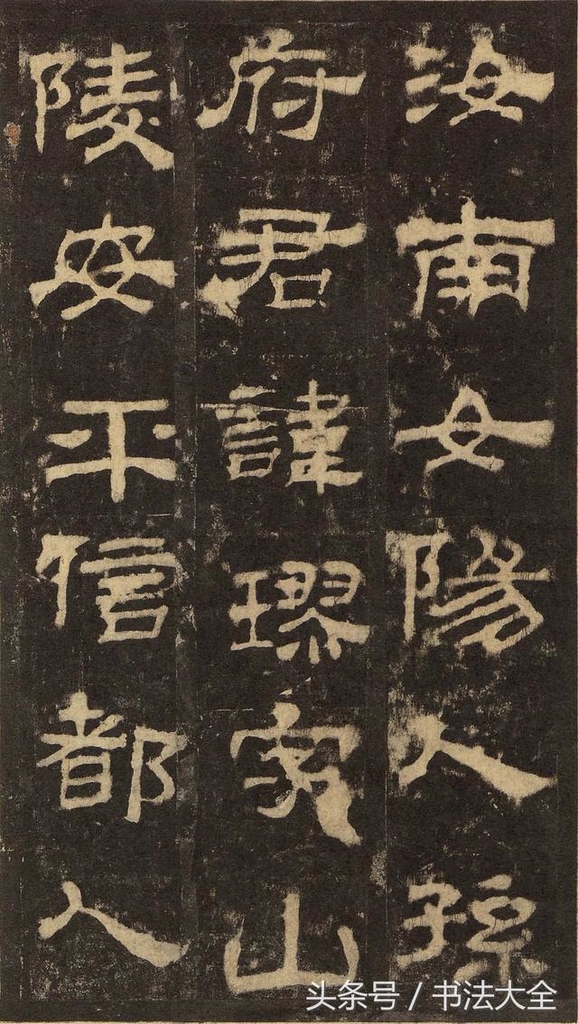 汝南女陽人孫
府君諱璆字山
陵安平信都人
头条号 / 书法大全